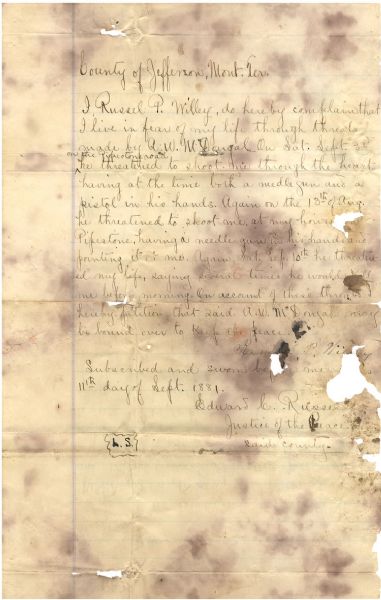 County of Jefferson, Mont. Ter.
I Russel P. Willey, do hereby complain that
I live in fear of my life through threats
made by A. W. McDougal On Sat. Sept. 3d
on the
he threatened to shoot me through the heart
having at the time both a needle gun and a
pistol in his hands. Again on the 13th of Aug.
he threatened to shoot me, at my house
Pipestone, having a needle gun in his hands and
pointing it at me. Again Sat. Sep. 10th he threaten
ed my life, saying several times he would
me before morning. On account of these
hereby petition that said A. W. McDougal may
be bound over to keep the peace.
Subscribed and sworn before me
11th day of Sept. 1881.
Edward C. Russe
Justice of the Peace
said county.
L.S.